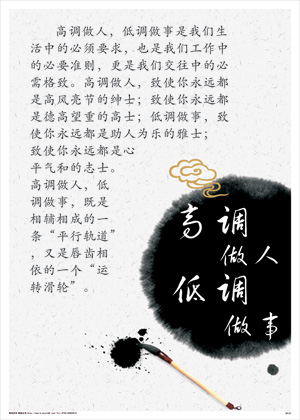 高调做人，低调做事是我们生
活中的必须要求，也是我们工作中
的必要准则，更是我们交往中的必
需格致。高调做人，致使你永远都
是高风亮节的绅士；致使你永远都
是德高望重的高士；低调做事，致
使你永远都是助人为乐的雅士；
致使你永远都是心
平气和的志士。
高调做人，低
调做事，既是
相辅相成的一
条“平行轨道”
，又是唇齿相
依的一个“运
转滑轮”。
高调
做人
低调
做事